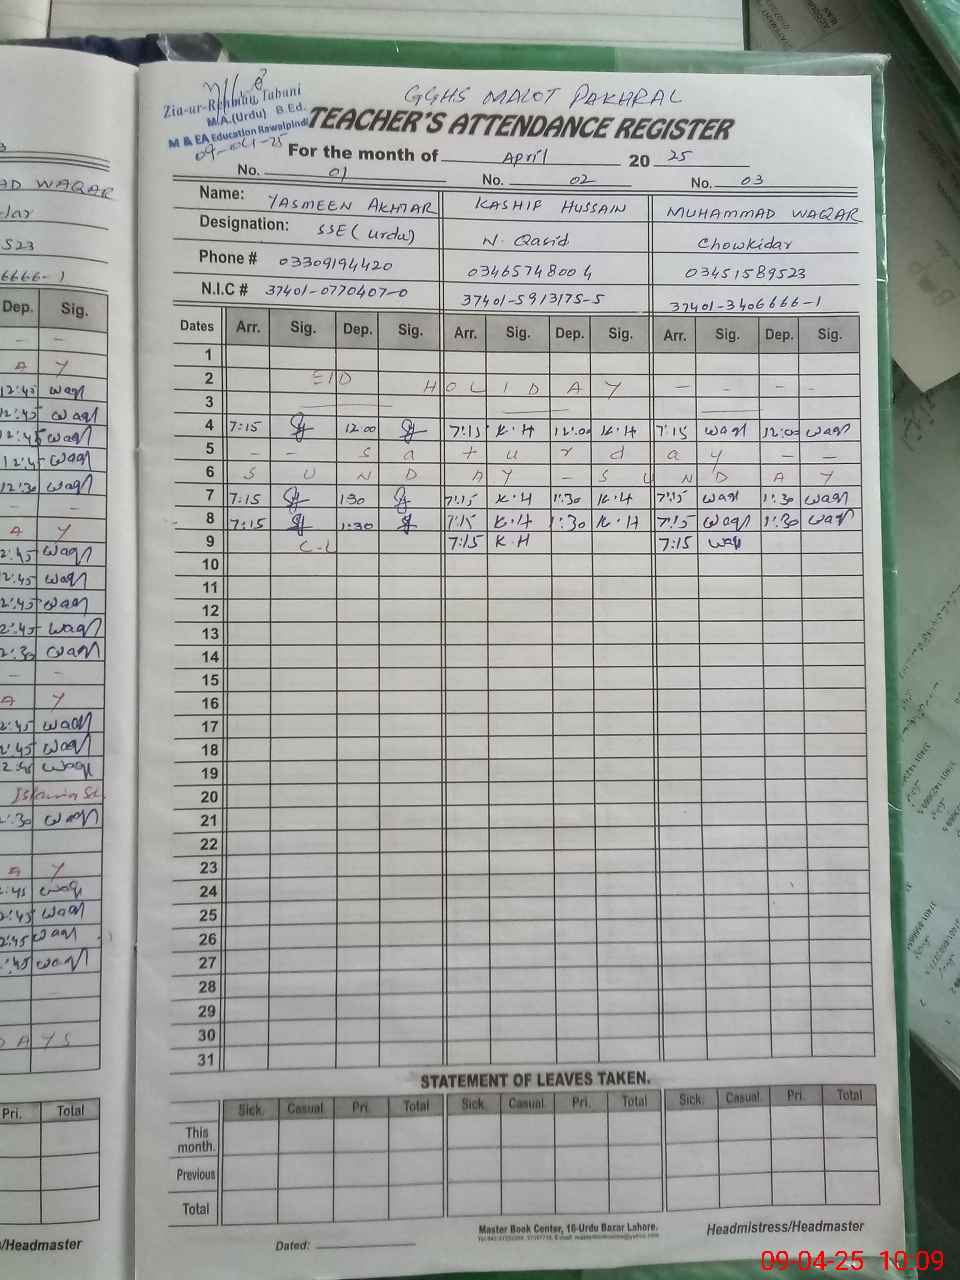 Zia-ur-Rehman Tabani
M.A.(Urdu) B.Ed.
M & EA Education Rawalpindi
09-04-25
GGHS MALOT PAKHRAL
TEACHER'S ATTENDANCE REGISTER
For the month of April 20 25
No. 01 No. 02 No. 03
Name: YASMEEN AKHTAR KASHIF HUSSAIN MUHAMMAD WAQAR
Designation: SSE (Urdu) N. Qasid Chowkidar
Phone # 03309194420 03465748004 03451589523
N.I.C # 37401-0770407-0 37401-5913175-5 37401-3406666-1
Dates Arr. Sig. Dep. Sig. Arr. Sig. Dep. Sig. Arr. Sig. Dep. Sig.
1
2 EID HOLIDAY - - - -
3
4 7:15 12:00 7:15 K.H 12:00 K.H 7:15 waqr 12:00 waqr
5 - - S a t u r d a y - -
6 S U N D A Y - S U N D A Y
7 7:15 1:30 7:15 K.H 1:30 K.H 7:15 waqr 1:30 waqr
8 7:15 1:30 7:15 K.H 1:30 K.H 7:15 waqr 1:30 waqr
9 C-L 7:15 K.H 7:15 waqr
10
11
12
13
14
15
16
17
18
19
20
21
22
23
24
25
26
27
28
29
30
31
STATEMENT OF LEAVES TAKEN.
Sick. Casual. Pri. Total Sick. Casual. Pri. Total Sick. Casual. Pri. Total
This month.
Previous
Total
Master Book Center, 16-Urdu Bazar Lahore.
Dated: Headmistress/Headmaster
AD WAQAR
dar
523
6666-1
Dep. Sig.
- -
A Y
12:45 waqr
12:45 waqr
12:45 waqr
12:45 waqr
12:30 waqr
- -
A Y
2:45 waqr
2:45 waqr
2:45 waqr
2:45 waqr
2:30 waqr
- -
A Y
2:45 waqr
2:45 waqr
2:45 waqr
2:30 waqr
A Y
:45 waqr
2:45 waqr
2:45 waqr
:45 waqr
DAYS
Pri. Total
/Headmaster
09-04-25 10:09